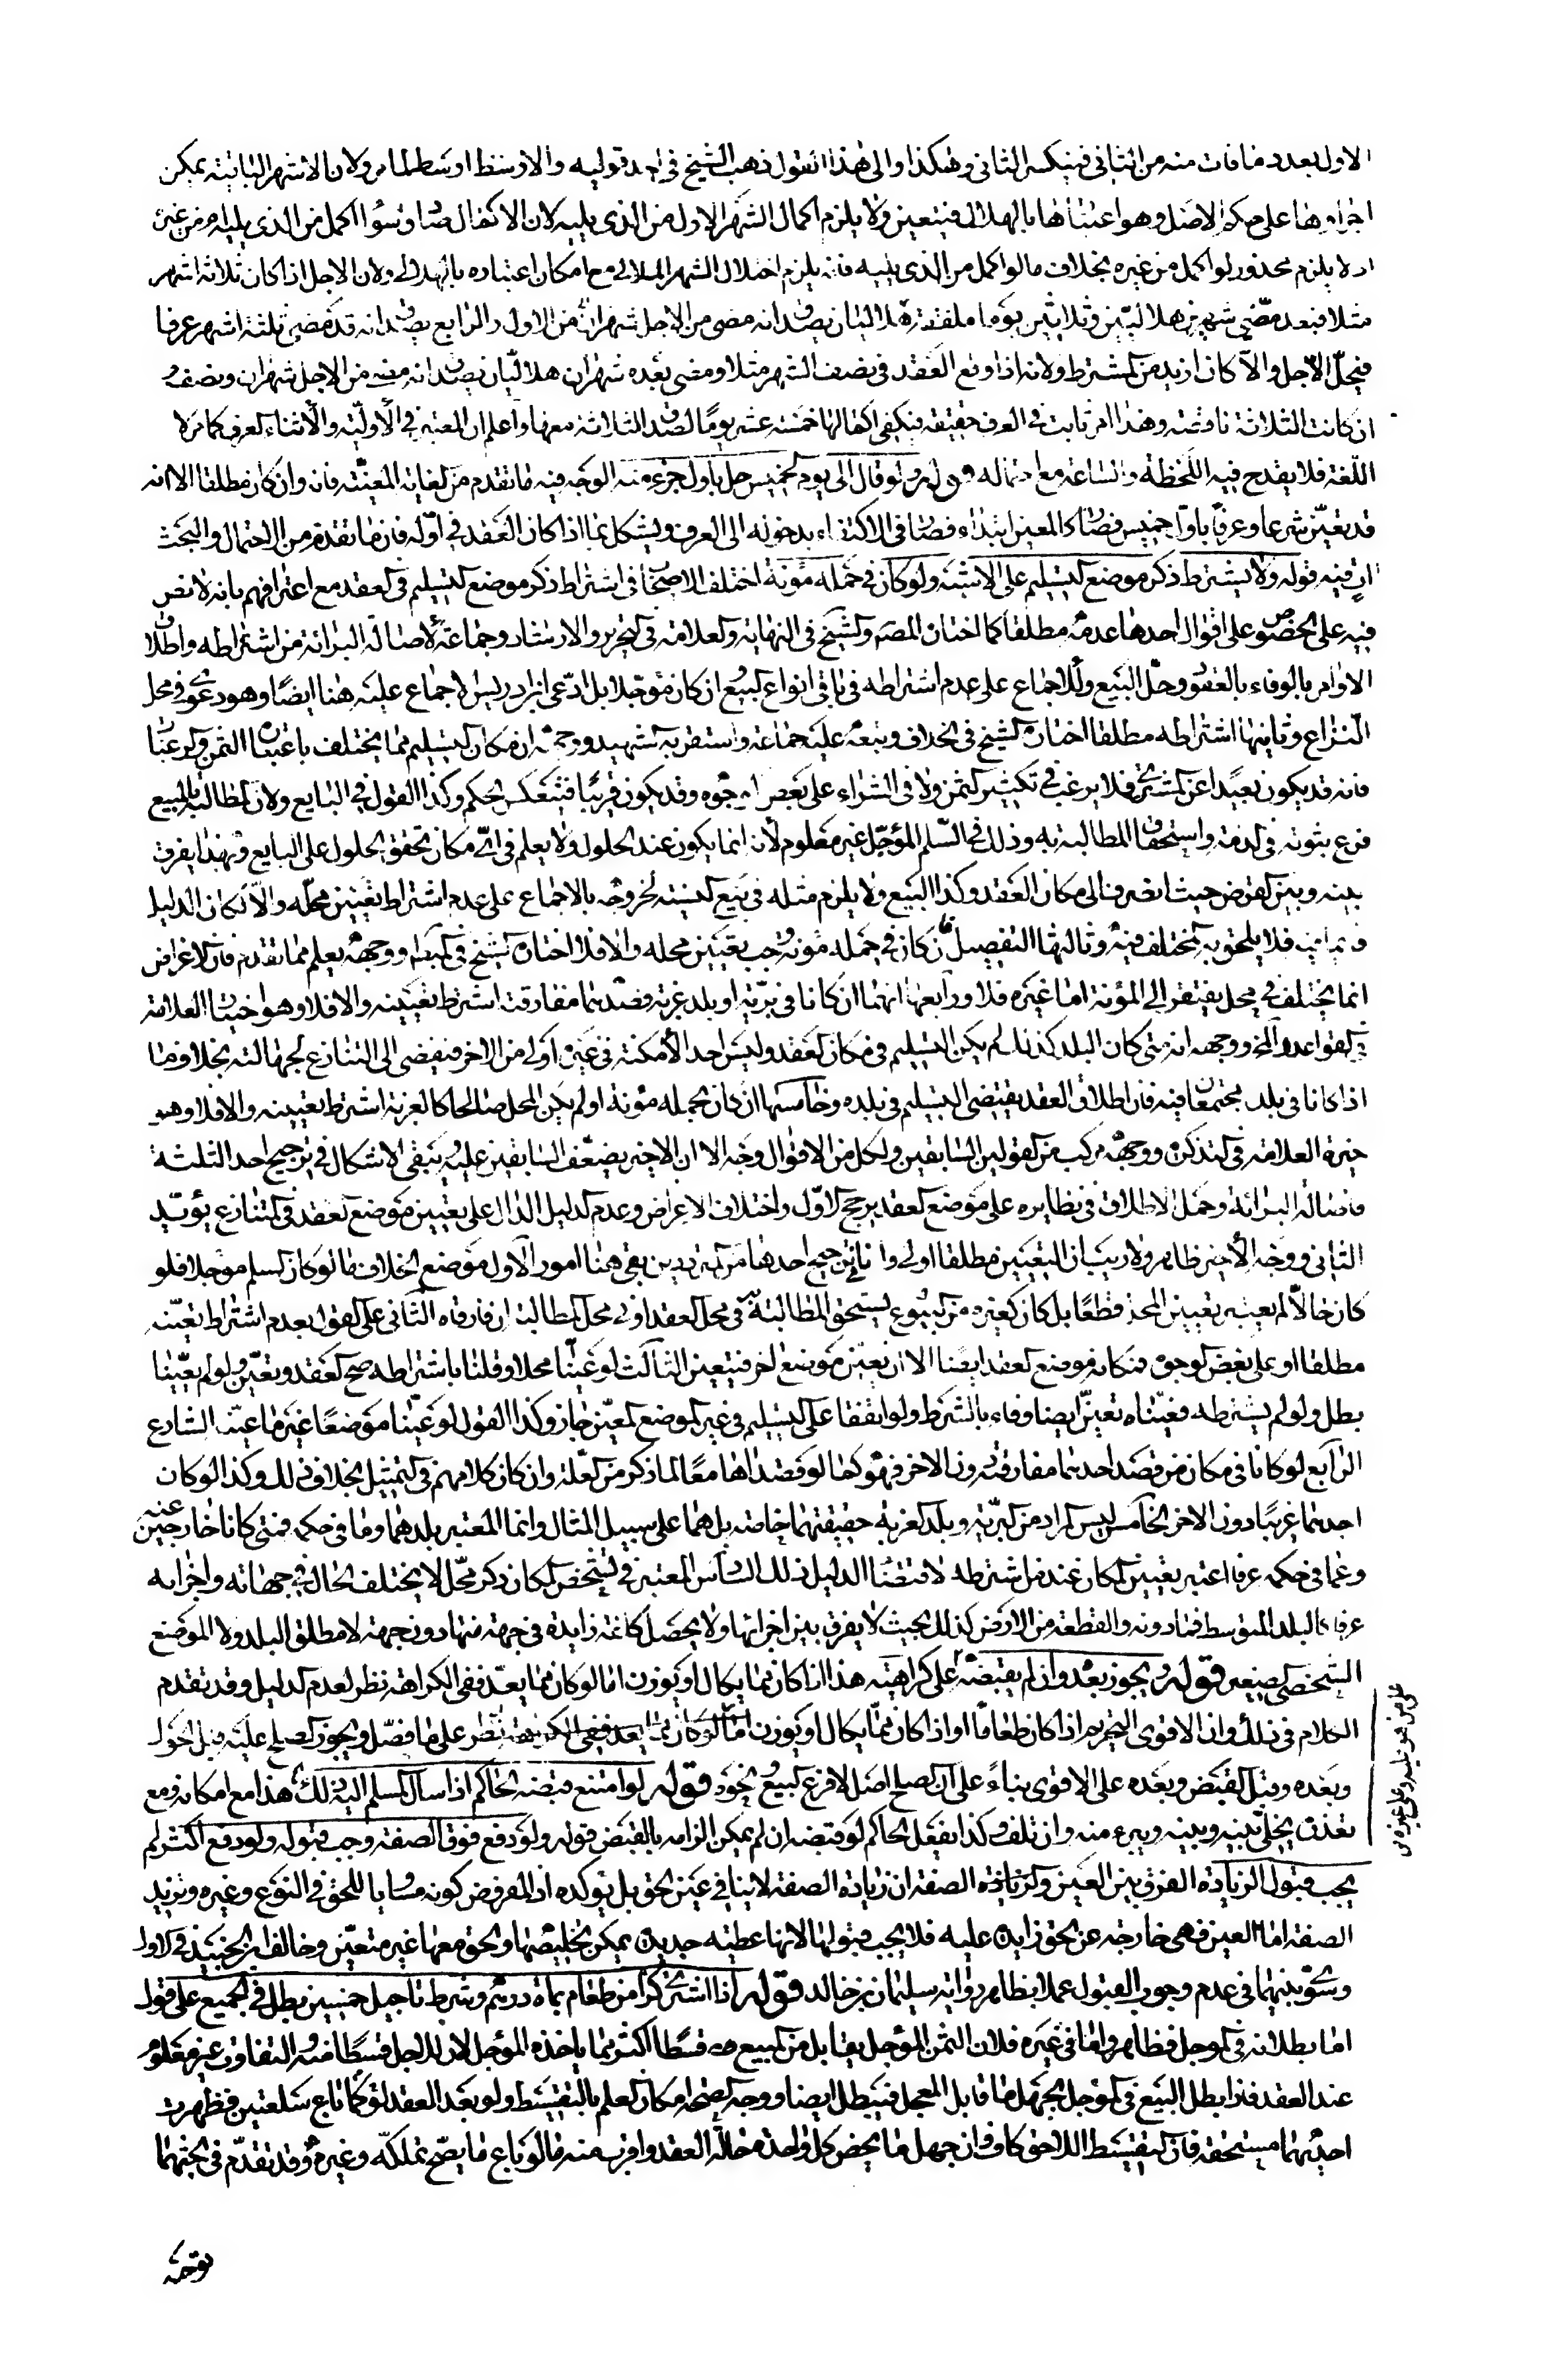 الاول بعدد ما فات منه من الثانى فينكسر الثانى وهكذا والى هذا القول ذهب الشيخ فى احد قوليه والاوسط اوسط لما مر ولان الاشهر الباقية يمكن
اجراءها على حكم الاصل وهو اعتبارها بالهلال فيتعين ولا يلزم اكمال الشهر الاول من الذى يليه لان الاكمال صادق سواء اكمل من الذى يليه ام من غيره
اذ لا يلزم محذور لو اكمل من غيره بخلاف ما لو اكمل من الذى يليه فانه يلزم اختلال الشهر الهلالى مع امكان اعتباره بالهلال ولان الاجل اذا كان ثلاثة اشهر
مثلا فبعد مضى شهرين هلاليين وثلاثين يوما ملفقة من الاول والرابع يصدق انه قد مضى ثلثة اشهر عرفا
فيحل الاجل والا كان ازيد من المشترط ولانه اذا وقع العقد فى نصف الشهر مثلا ومضى بعده شهران هلاليان يصدق انه مضى من الاجل شهران ونصف و
ان كانت الثلاثة ناقصة وهذا امر ثابت فى العرف حقيقة فيكفى اكمالها خمسة عشر يوما لصدق الثلاثة معها واعلم ان المعتبر فى الاولية والاثناء العرف كما مر لا
اللغة فلا يقدح فيه اللحظة والساعة مع احتماله قوله ولو قال الى يوم الخميس حل باول جزء منه الوجه فيه ما تقدم من الغاية المعينة فانه وان كان مطلقا الا انه
قد تعين شرعا وعرفا باول خميس فصار كالمعين ابتداء فصار فى الاكتفاء بدخوله الى العرف ويشكل بما اذا كان العقد فى اوله فان ما تقدم من الاحتمال والبحث
ات فيه قوله ولا يشترط ذكر موضع التسليم على الاشبه ولو كان فى حمله مؤنة اختلف الاصحاب فى اشتراط ذكر موضع التسليم فى العقد مع اعترافهم بانه لا نص
فيه على الخصوص على اقوال احدها عدمه مطلقا كما اختاره المصه والشيخ فى النهاية والعلامة فى التحرير والارشاد وجماعة لاصالة البرائة من اشتراطه واطلاق
الاوامر بالوفاء بالعقود وحل البيع وللاجماع على عدم اشتراطه فى باقى انواع البيوع ان كان مؤجلا بل ادعى ابن ادريس الاجماع عليه هنا ايضا وهو دعوى فى محل
النزاع وثانيها اشتراطه مطلقا اختاره الشيخ فى الخلاف وتبعه عليه جماعة واستقربه الشهيد ووجهه ان مكان التسليم مما يختلف باعتباره الثمن والرغبات
فانه قد يكون بعيدا عن المشترى فلا يرغب فى تكثير الثمن ولا فى الشراء على بعض الوجوه وقد يكون قريبا فينعكس الحكم وكذا القول فى البايع ولان المطالبة بالمبيع
فرع ثبوته فى الذمة واستحقاق المطالبة به وذلك فى السلم المؤجل غير معلوم لانه انما يكون عند الحلول ولا يعلم فى اى مكان تحقق الحلول على البايع وبهذا يفرق
بينه وبين القرض حيث انصرف الى مكان العقد وكذا البيع ولا يلزم مثله فى بيع النسية لخروجه بالاجماع على عدم اشتراط تعيين محله والا لكان الدليل
فلا يلحق به المختلف فيه وثالثها التفصيل ان كان فى حمله مؤنة وجب تعيين محله والا فلا اختاره الشيخ فى المبسوط ووجهه يعلم مما تقدم فان الاغراض
انما يختلف فى محل يفتقر الى المؤنة اما غيره فلا ورابعها انهما ان كانا فى برية او بلد غربة قصدهما مفارقته اشترط تعيينه والا فلا وهو اختيار العلامة
فى القواعد ووجهه انه متى كان البلد كذلك لم يكن التسليم فى مكان العقد وليس احد الامكنة فى غيره اولى من الاخر فيفضى الى التنازع لجهالته بخلاف ما
اذا كانا فى بلد مجتمعين فيه فان اطلاق العقد يقتضى التسليم فى بلده وخامسها ان كان لحمله مؤنة او لم يكن المحل صالحا كالغربة اشترط تعيينه والا فلا وهو
خيرة العلامة فى التذكرة ووجهه مركب من القولين السابقين ولكل من الاقوال وجه الا ان الاخير يضعف السابقين عليه ويبقى الاشكال فى ترجيح احد الثلثة
فاصالة البرائة وحمل الاطلاق فى نظايره على موضع العقد يرجح الاول واختلاف الاغراض وعدم الدليل الدال على تعيين موضع العقد فى المتنازع يؤيد
الثانى ووجه الاخير ظاهر ولا ريب ان التعيين مطلقا اولى بقى هنا امور الاول موضع الخلاف ما لو كان السلم مؤجلا فلو
كان حالا لم يعتبر تعيين المحل قطعا بل كان كغيره من البيوع يستحق المطالبة به فى محل العقد او فى محل المطالبة ان فارقاه الثانى على القول بعدم اشتراط تعينه
مطلقا او على بعض الوجوه فمكانه موضع العقد ايضا الا ان يعين موضع اخر فيتعين الثالث لو عينا محلا وقلنا باشتراطه صح العقد وتعين ولو لم يعينا
بطل ولو لم يشترطه فعيناه تعين ايضا وفاء بالشرط ولو اتفقا على التسليم فى غير الموضع المعين جاز وكذا القول لو عينا موضعا غير ما عينه الشارع
الرابع لو كانا فى مكان من قصد احدهما مفارقته دون الاخر فهو كما لو قصداها معا لما ذكر من العلة وان كان كلامهم فى التمثيل بخلاف ذلك وكذا لو كان
احدهما غريبا دون الاخر الخامس ليس المراد من البرية وبلد الغربة حقيقتهما خاصة بل هما على سبيل المثال وانما المعتبر بلدهما وما فى حكمه فمتى كانا خارجين عنه
وعما فى حكمه عرفا اعتبر تعيين المكان عند من اشترطه لاقتضاء الدليل ذلك السادس المعتبر فى تشخص المكان ذكر محل لا يختلف الحال فى جهاته واجزائه
عرفا كالبلد المتوسط فما دونه والقطعة من الارض كذلك بحيث لا يفرق بين اجزائها ولا يحصل كلفة زايدة فى جهة منها دون جهة لا مطلق البلد ولا الموضع
الشخصى الصغير قوله ويجوز بعده وان لم يقبضه على كراهية هذا اذا كان مما يكال او يوزن اما لو كان مما يعد ففى الكراهة نظر لعدم الدليل وقد تقدم
الكلام فى ذلك وان الاقوى التحريم اذا كان طعاما او اذا كان مما يكال او يوزن اما لو كان مما يعد ففى الكراهة نظر على ما فصل ويجوز الصلح عليه قبل الحلول
وبعده وقبل القبض وبعده على الاقوى بناء على ان الصلح اصل لا فرع البيوع قوله لو امتنع قبضه الحاكم اذا سال المسلم اليه ذلك هذا مع امكانه ومع
تعذره يخلى بينه وبينه ويبرء منه وان تلف وكذا يفعل الحاكم لو قبضه ان لم يمكن الزامه بالقبض قوله ولو دفع فوق الصفة وجب قبوله ولو دفع اكثر لم
يجب قبول الزيادة الفرق بين العين وزيادة الصفة ان زيادة الصفة لا ينافى عين الحق بل يؤكده اذ المفروض كونه مساويا للحق فى النوع وغيره ويزيد
الصفة اما العين فهى خارجة عن الحق زايدة عليه فلا يجب قبولها لانها عطية جديدة يمكن تخليصها والحق معها غير متعين وخالف ابن الجنيد فى الاول
وسوى بينهما فى عدم وجوب القبول عملا بظاهر رواية سليمان بن خالد قوله اذا اشترى كرا من طعام بمائة درهم وشرط تاجيل خمسين بطل فى الجميع على قول
اما بطلانه فى المؤجل فظاهر واما فى غيره فلان الثمن المؤجل يقابل من المبيع قسطا اكثر مما ياخذه المؤجل لان للاجل قسطا منه والتفاوت غير معلوم
عند العقد فاذا بطل البيع فى المؤجل لجهل ما قابل المعجل فيبطل ايضا ووجه الصحة امكان العلم بالتقسيط ولو بعد العقد لو كما باع سلعتين فظهرت
احديهما مستحقة فان التقسيط اللاحق كاف وان جهل ما يخص كل واحدة حالة العقد واقرب منه ما لو باع ما يصح تملكه وغيره وقد تقدم فى بحثهما
توجه